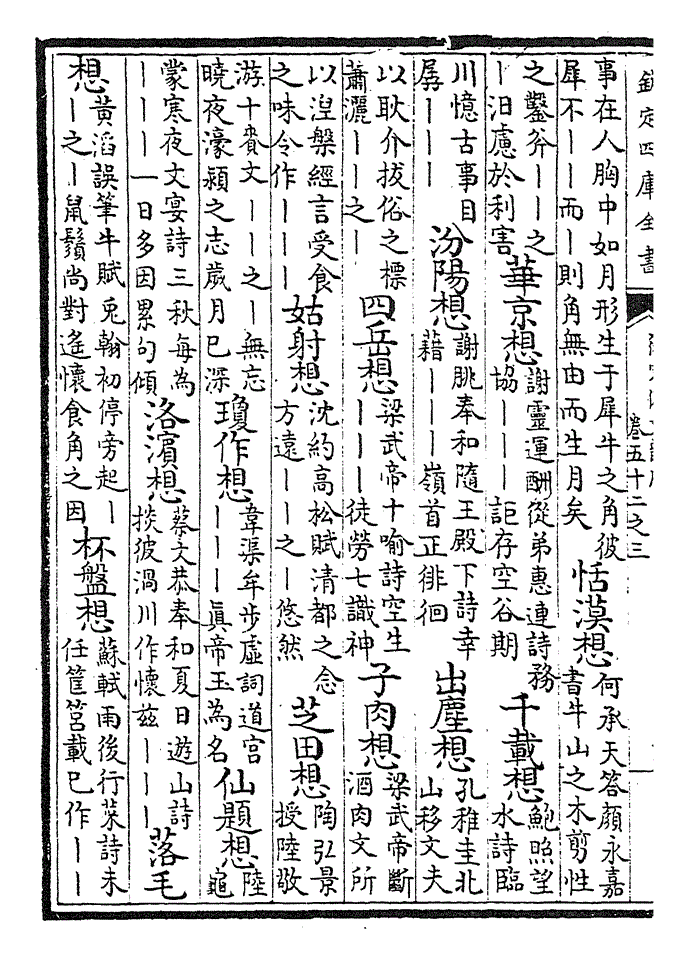 欽定四庫全書
卷五十二之三
事在人胸中如月形生于犀牛之角彼
犀不｜｜而｜則角無由而生月矣
恬漠想
何承天答顏永嘉
書牛山之木剪性
之鑿斧｜｜之
｜汨慮於利害
華京想
謝靈運酬從弟惠連詩務
協｜｜｜詎存空谷期
千載想
鮑照望
水詩臨
川憶古事目
孱｜｜｜
汾陽想
謝朓奉和隨王殿下詩幸
藉｜｜｜嶺首正徘徊
出塵想
孔稚圭北
山移文夫
以耿介拔俗之標
蕭灑｜｜之｜
四岳想
梁武帝十喻詩空生
｜｜｜徒勞七識神
子肉想
梁武帝斷
酒肉文所
以涅槃經言受食
之味令作｜｜｜
姑射想
沈約高松賦清都之念
方遠｜｜之｜悠然
芝田想
陶弘景
授陸敬
游十賚文｜｜之｜無忘
曉夜濠潁之志歲月已深
瓊作想
韋渠牟步虛詞道宮
｜｜｜眞帝玉為名
仙題想
陸
龜
蒙寒夜文宴詩三秋每為
｜｜｜一日多因累句傾
洛濱想
蔡文恭奉和夏日遊山詩
掞彼渦川作懷茲｜｜｜
落毛
想
黃滔誤筆牛賦兎翰初停旁起｜
｜之｜鼠鬚尚對遙懷食角之因
杯盤想
蘇軾雨後行菜詩未
任筐筥載已作｜｜